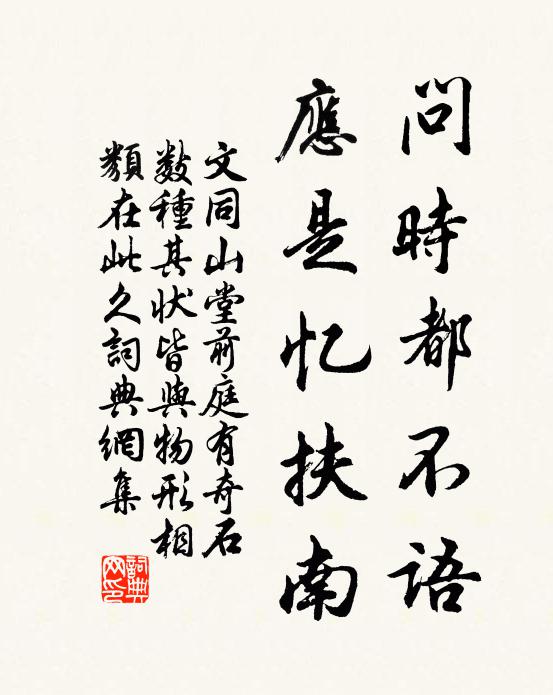 問時都不語
應是忆扶南
文同山堂前庭有奇石
数種其狀皆與物形相
類在此久詞典網集
詞典網印